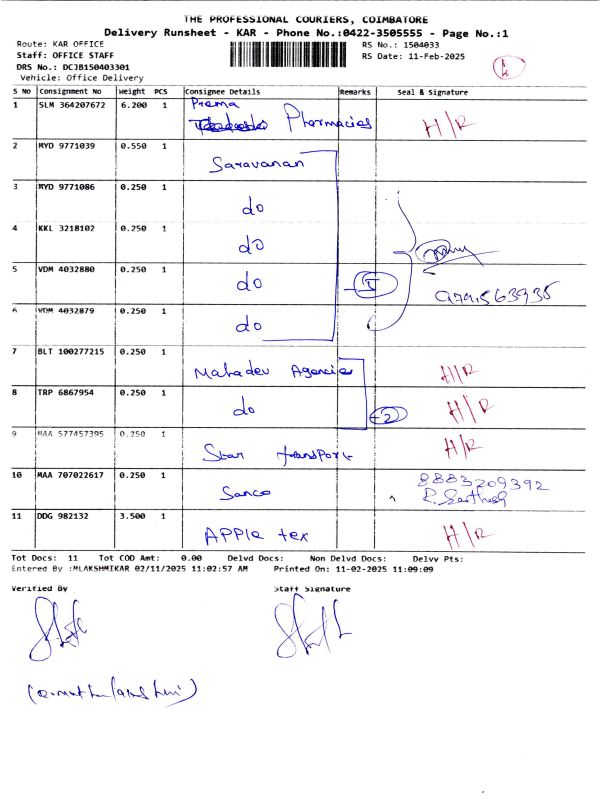 THE PROFESSIONAL COURIERS, COIMBATORE
Delivery Runsheet - KAR - Phone No.:0422-3505555 - Page No.:1
Route: KAR OFFICE
RS No.: 1504033
Staff: OFFICE STAFF
RS Date: 11-Feb-2025
DRS No.: DCJB150403301
Vehicle: Office Delivery
S No Consignment No Weight PCS Consignee Details Remarks Seal & Signature
1 SLM 364207672 6.200 1 Prema Pharmacies H/R
2 MYD 9771039 0.550 1 Saravanan
3 MYD 9771086 0.250 1 do
4 KKL 3218102 0.250 1 do
5 VDM 4032880 0.250 1 do
6 VDM 4032879 0.250 1 do
7 BLT 100277215 0.250 1 Mahadev Agencie H/R
8 TRP 6867954 0.250 1 do 2 H/R
9 MAA 577457395 0.250 1 Star transport H/R
10 MAA 707022617 0.250 1 Sanco 8883209392
R. Sarthish
11 DDG 982132 3.500 1 APPle tex H/R
Tot Docs: 11 Tot COD Amt: 0.00 Delvd Docs: Non Delvd Docs: Delvv Pts:
Entered By :MLAKSHMIKAR 02/11/2025 11:02:57 AM Printed On: 11-02-2025 11:09:09
Verified By Staff Signature